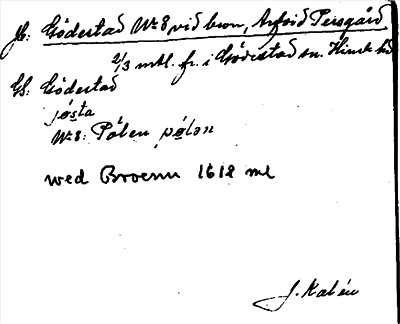 Jb: Gödestad Nr 8 vid bron, Arfvid Persgård
2/3 mtl. fr. i Gödestad sn. Himle hd
Gb: Gödestad
jøsta
Nr 8: Pålen pølən
wed Broenn 1612 ml
J. Kalén